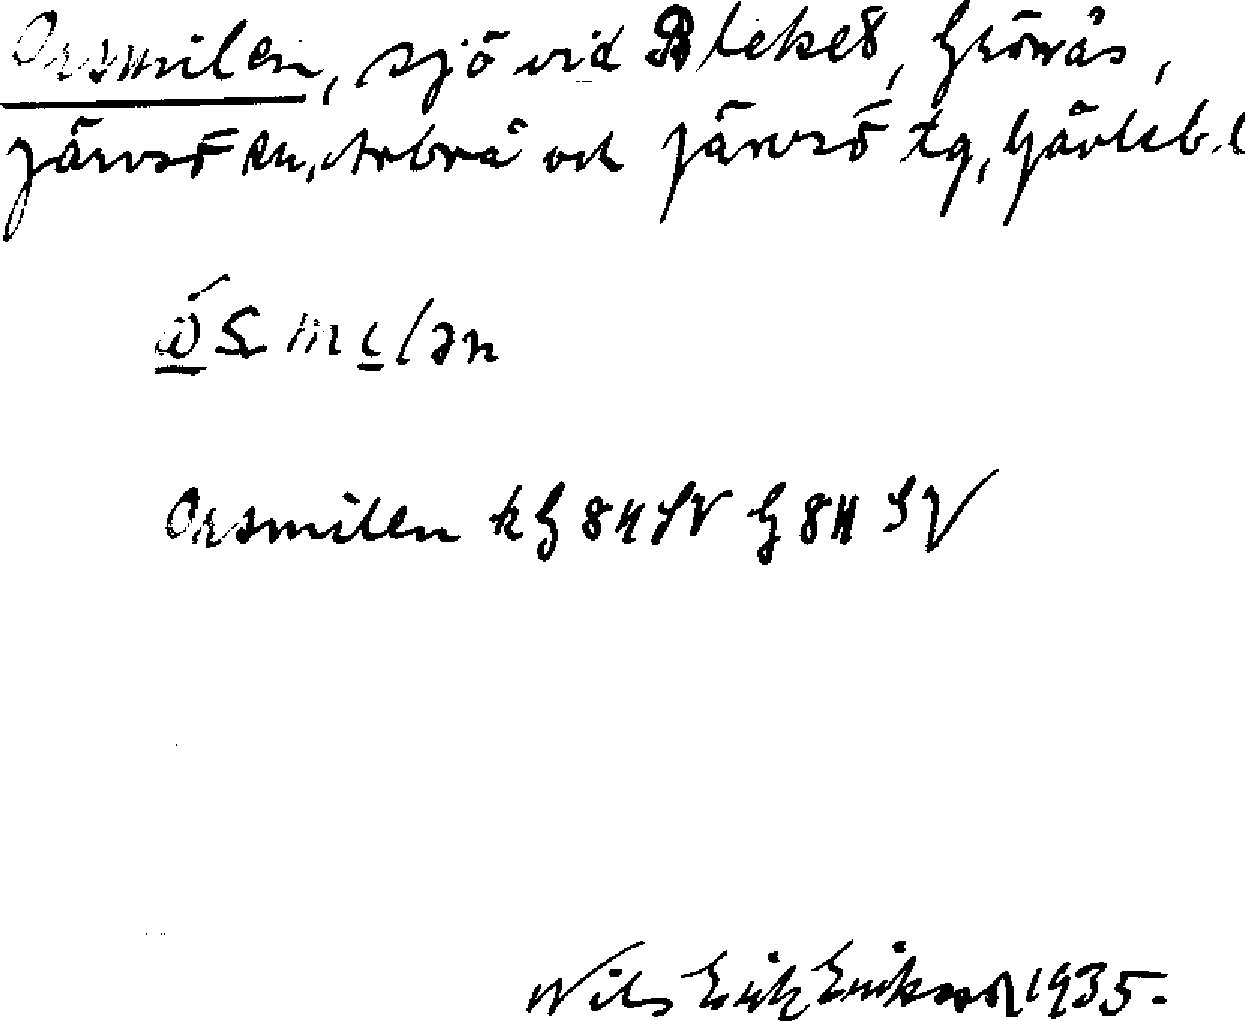 Orsmilen, sjö vid Blekes, Grönås,
Järvsö sn, Arbrå och Järvsö tg, Gävleb. l
Orsmilen kG 84 SV G 84 SV
Nils Erik Eriksson 1935.